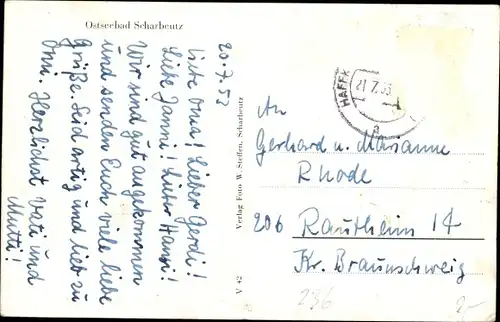 Ostseebad Scharbeutz
20.7.53
Liebe Oma! Lieber Gerdi!
Liebe Janni! Lieber Hansi!
Wir sind gut angekommen
und senden Euch viele liebe
Grüße. Seid artig und lieb zu
Oma. Herzlichst Vati und
Mutti!
Verlag Foto W. Steffen, Scharbeutz
A 42
HAFFK
21.7.53
An
Gerhard u. Marianne
Rhode
20b Rautheim 14
Kr. Braunschweig
236